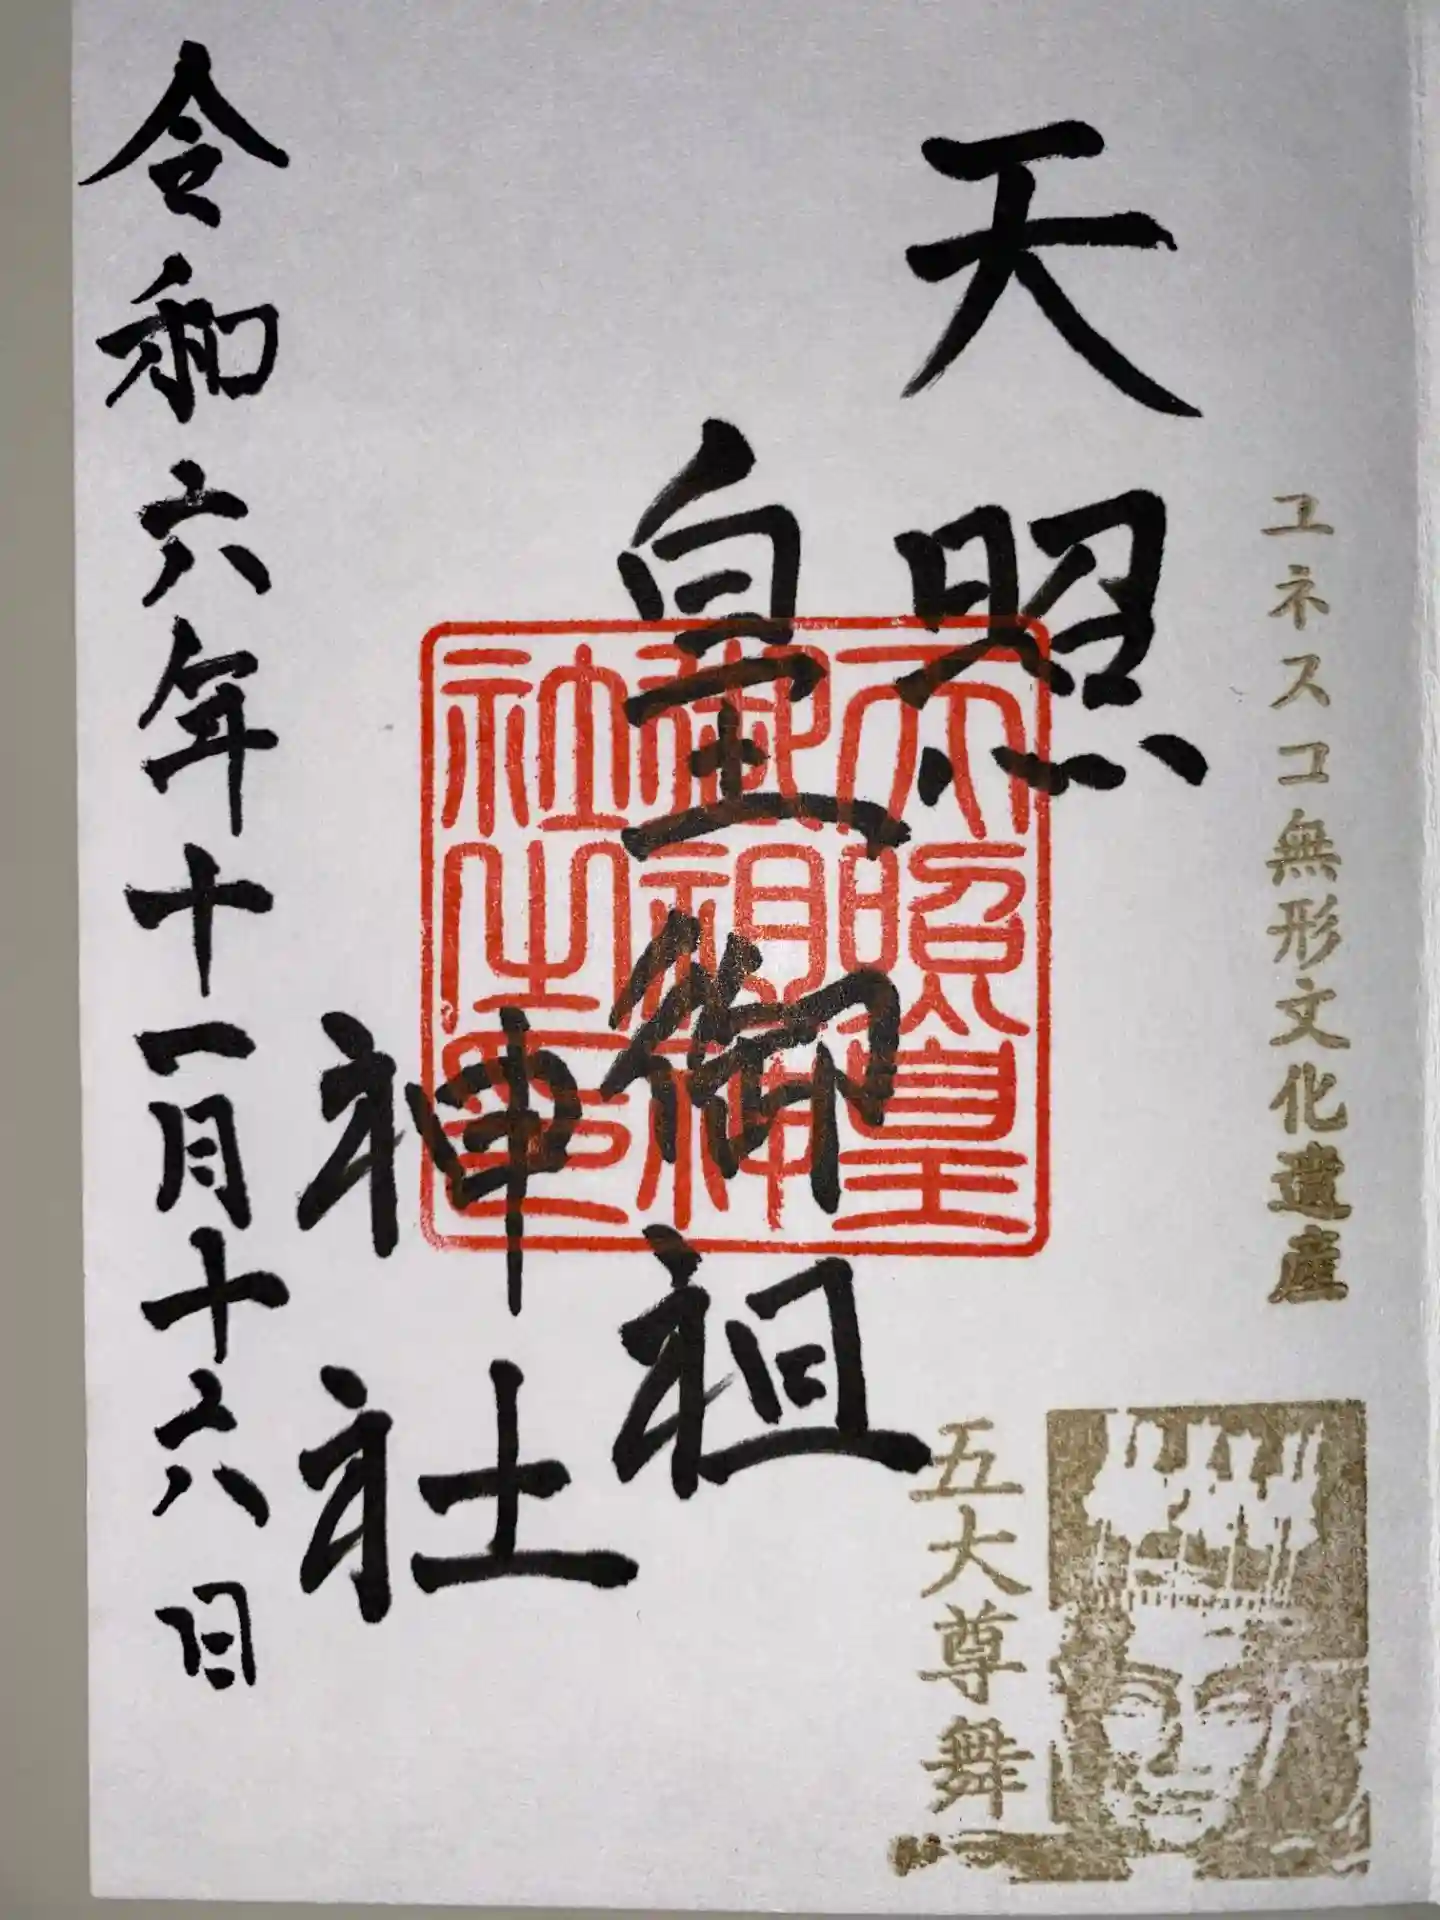 ユネスコ無形文化遺産
五大尊舞
天照
皇御祖
神社
天照皇
御祖神
社之印
令和六年十一月十六日